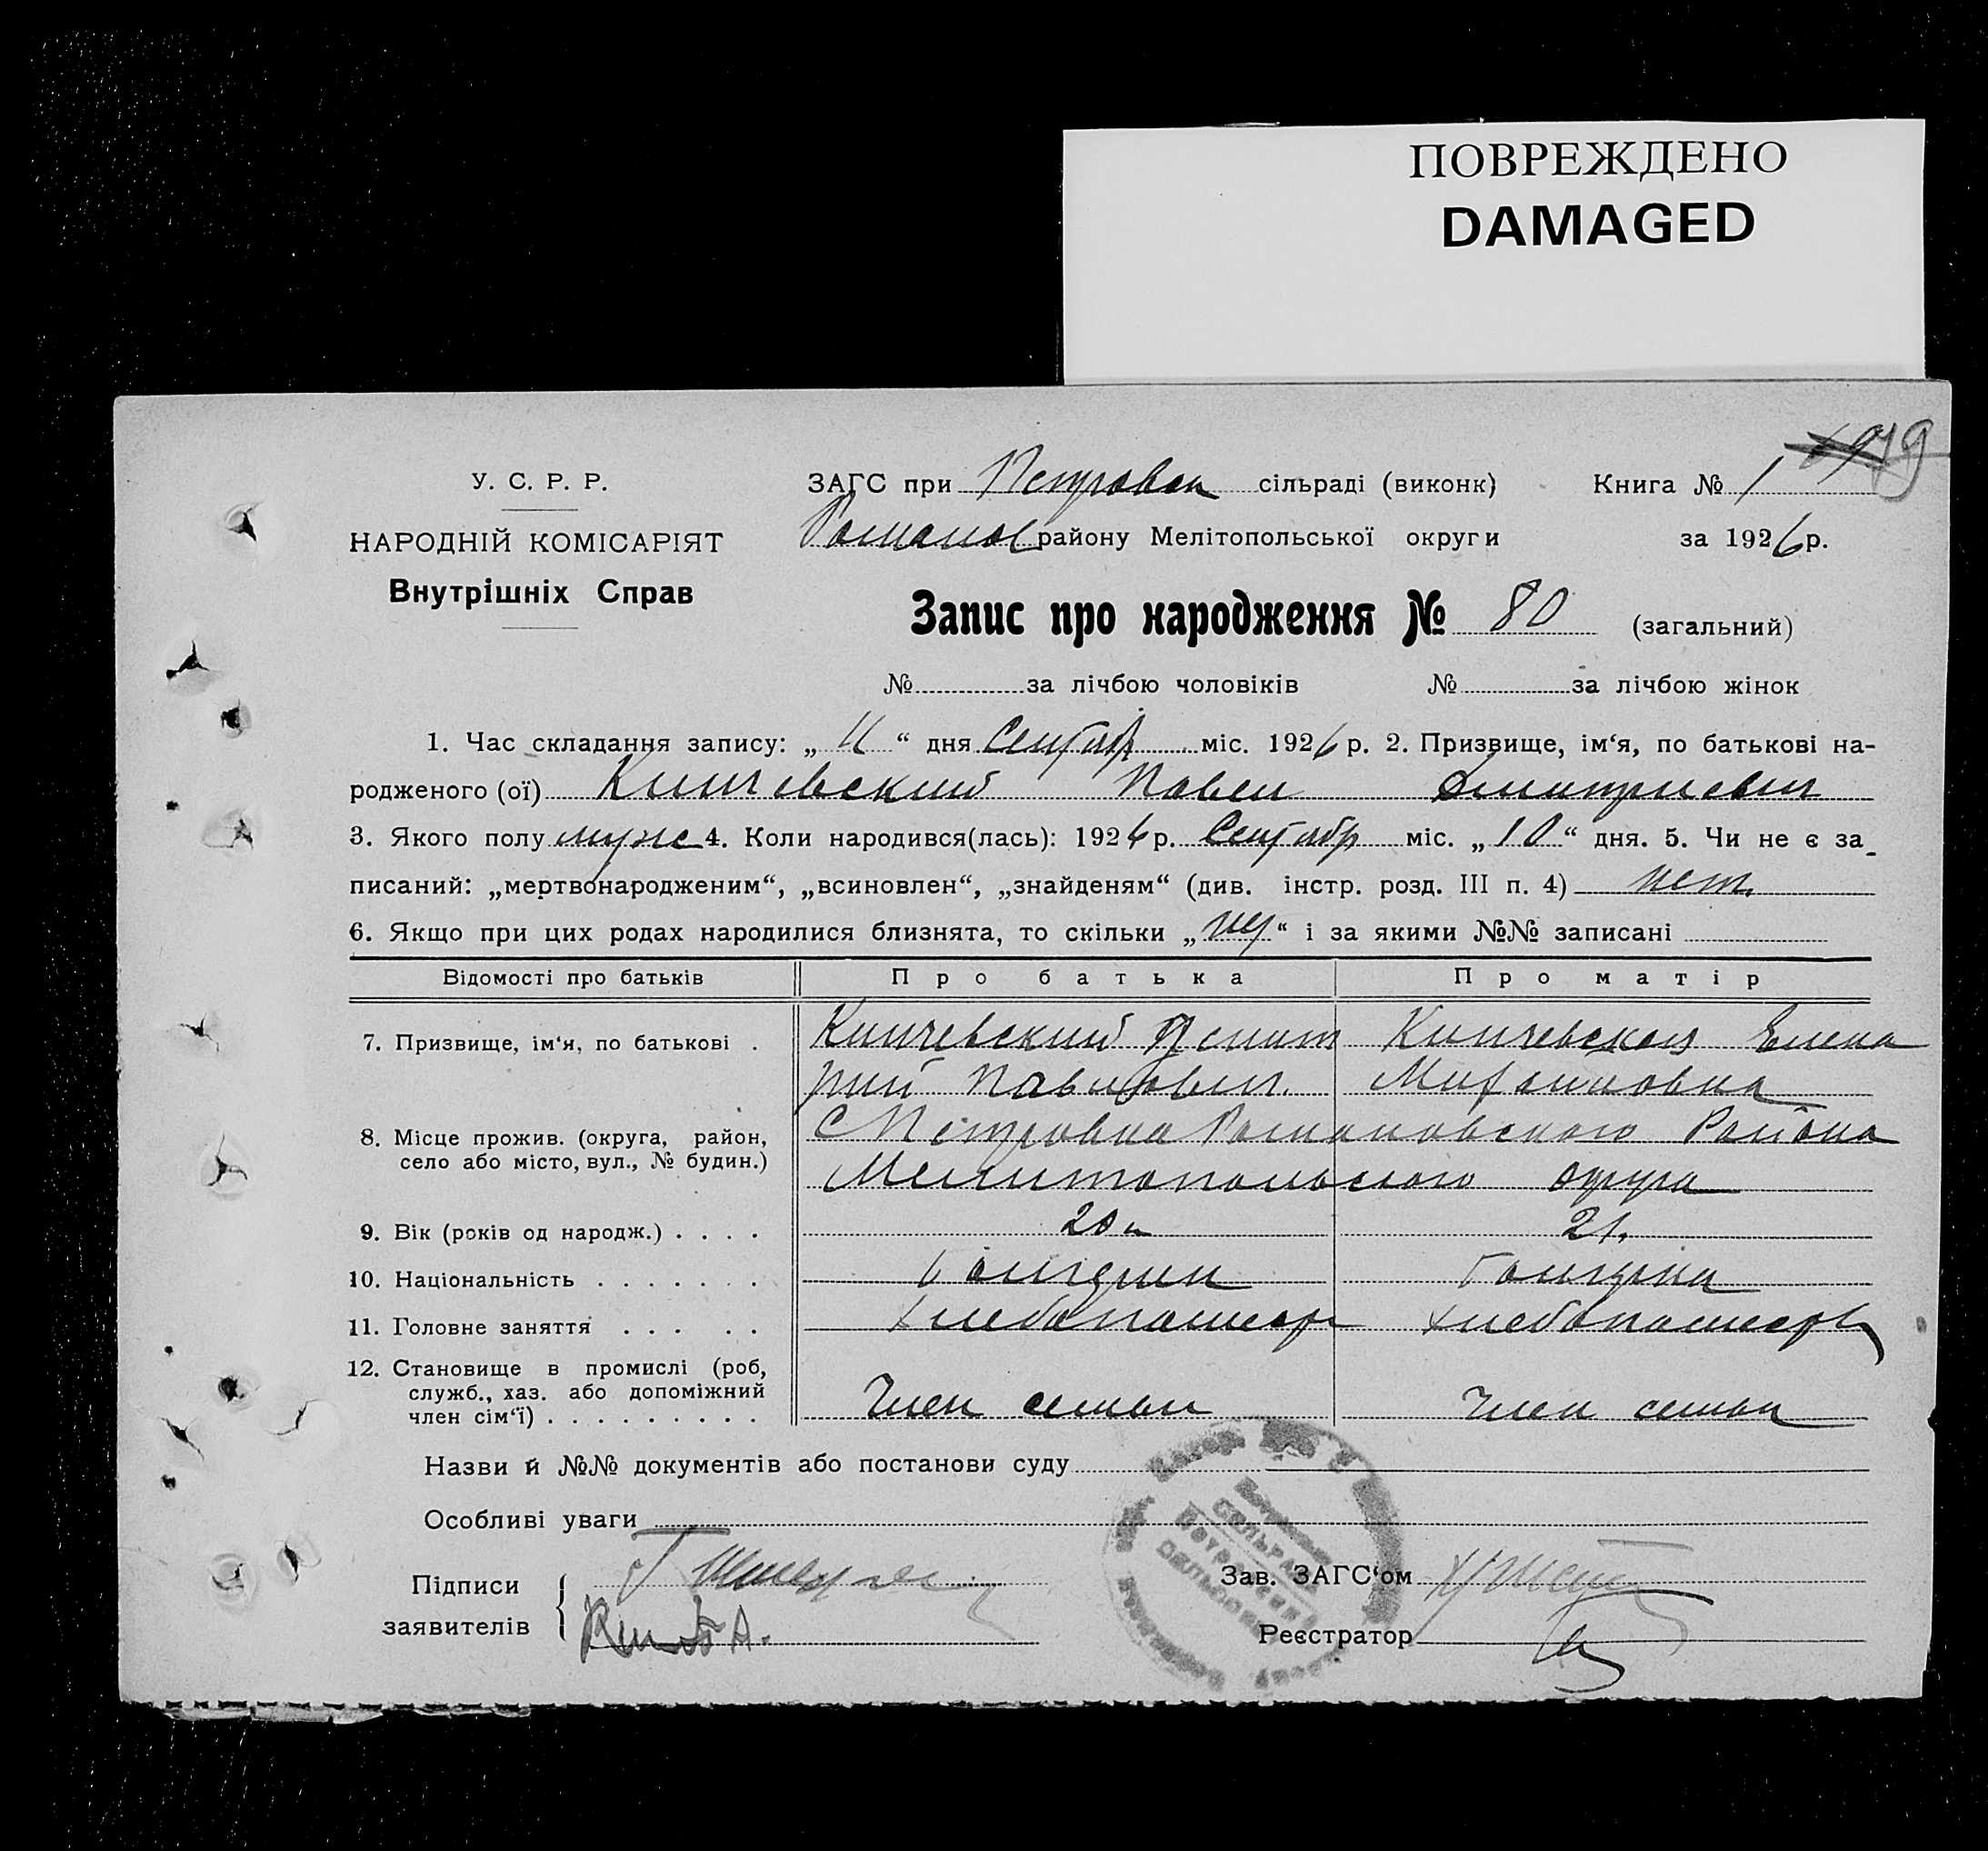 ПОВРЕЖДЕНО
DAMAGED
79
У. С. Р. Р.
НАРОДНІЙ КОМІСАРІЯТ
Внутрішніх Справ
ЗАГС при Петровск сільраді (виконк) Книга № 1
Романов району Мелітопольської округи за 1926 р.
Запис про народження № 80 (загальний)
№ за лічбою чоловіків № за лічбою жінок
1. Час складання запису: „11“ дня Сентябр міс. 1926 р. 2. Призвище, ім‘я, по батькові на-
родженого (ої) Кипчевский Павел Дмитриевич
3. Якого полу муже 4. Коли народився(лась): 1926 р. Сентябр міс. „10“ дня. 5. Чи не є за-
писаний: „мертвонародженим“, „всиновлен“, „знайденям“ (див. інстр. розд. III п. 4) нет.
6. Якщо при цих родах народилися близнята, то скільки „нет“ і за якими №№ записані
Відомості про батьків Про батька Про матір
7. Призвище, ім‘я, по батькові . Кипчевский Дмит Кипчевская Елена
рий Павлович. Михайловна
8. Місце прожив. (округа, район, С Петровка Романовского Района
село або місто, вул., № будин.) Мелитопольского округа
9. Вік (років од народж.) . . . . 20 21.
10. Національність . . . . . . .
11. Головне заняття . . . . . Хлебопашеср Хлебопашеср
12. Становище в промислі (роб,
служб., хаз. або допоміжний
член сім‘ї) . . . . . . . . . Член семьи Член семьи
Назви й №№ документів або постанови суду
Особливі уваги
Підписи
заявителів
Зав. ЗАГС‘ом
Реєстратор